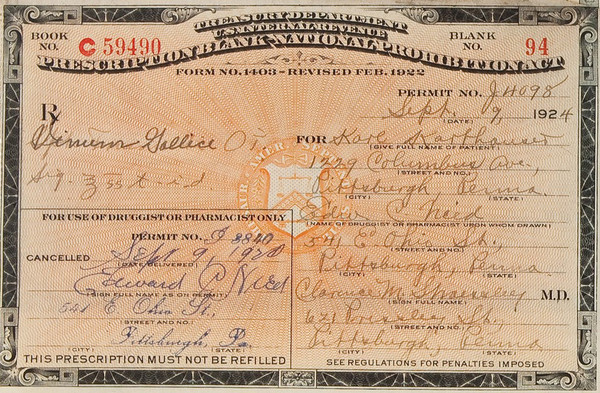 TREASURY DEPARTMENT
U.S. INTERNAL REVENUE
PRESCRIPTION BLANK-NATIONAL PROHIBITION ACT
FORM NO. 1403 - REVISED FEB. 1922
BOOK NO. C 59490
BLANK NO. 94
PERMIT NO. J 4098
Sept. 9, 1924
(DATE)
Rx
Vinum Gallice O i
Sig. ℥ss t.i.d.
FOR Karl
(GIVE FULL NAME OF PATIENT)
1729 Columbus Ave,
(STREET AND NO.)
Pittsburgh, Penna.
(CITY) (STATE)
Edw C Nied
(NAME OF DRUGGIST OR PHARMACIST UPON WHOM DRAWN)
541 E Ohio St,
(STREET AND NO.)
Pittsburgh, Penna.
(CITY) (STATE)
Clarence M. M.D.
(SIGN FULL NAME)
621 Pressley St,
(STREET AND NO.)
Pittsburgh, Penna
(CITY) (STATE)
SEE REGULATIONS FOR PENALTIES IMPOSED
FOR USE OF DRUGGIST OR PHARMACIST ONLY
PERMIT NO. J 8840
CANCELLED Sept 9, 1924
(DATE DELIVERED)
Edward C Nied
(SIGN FULL NAME AS ON PERMIT)
541 E Ohio St.,
(STREET AND NO.)
Pittsburgh, Pa.
(CITY) (STATE)
THIS PRESCRIPTION MUST NOT BE REFILLED